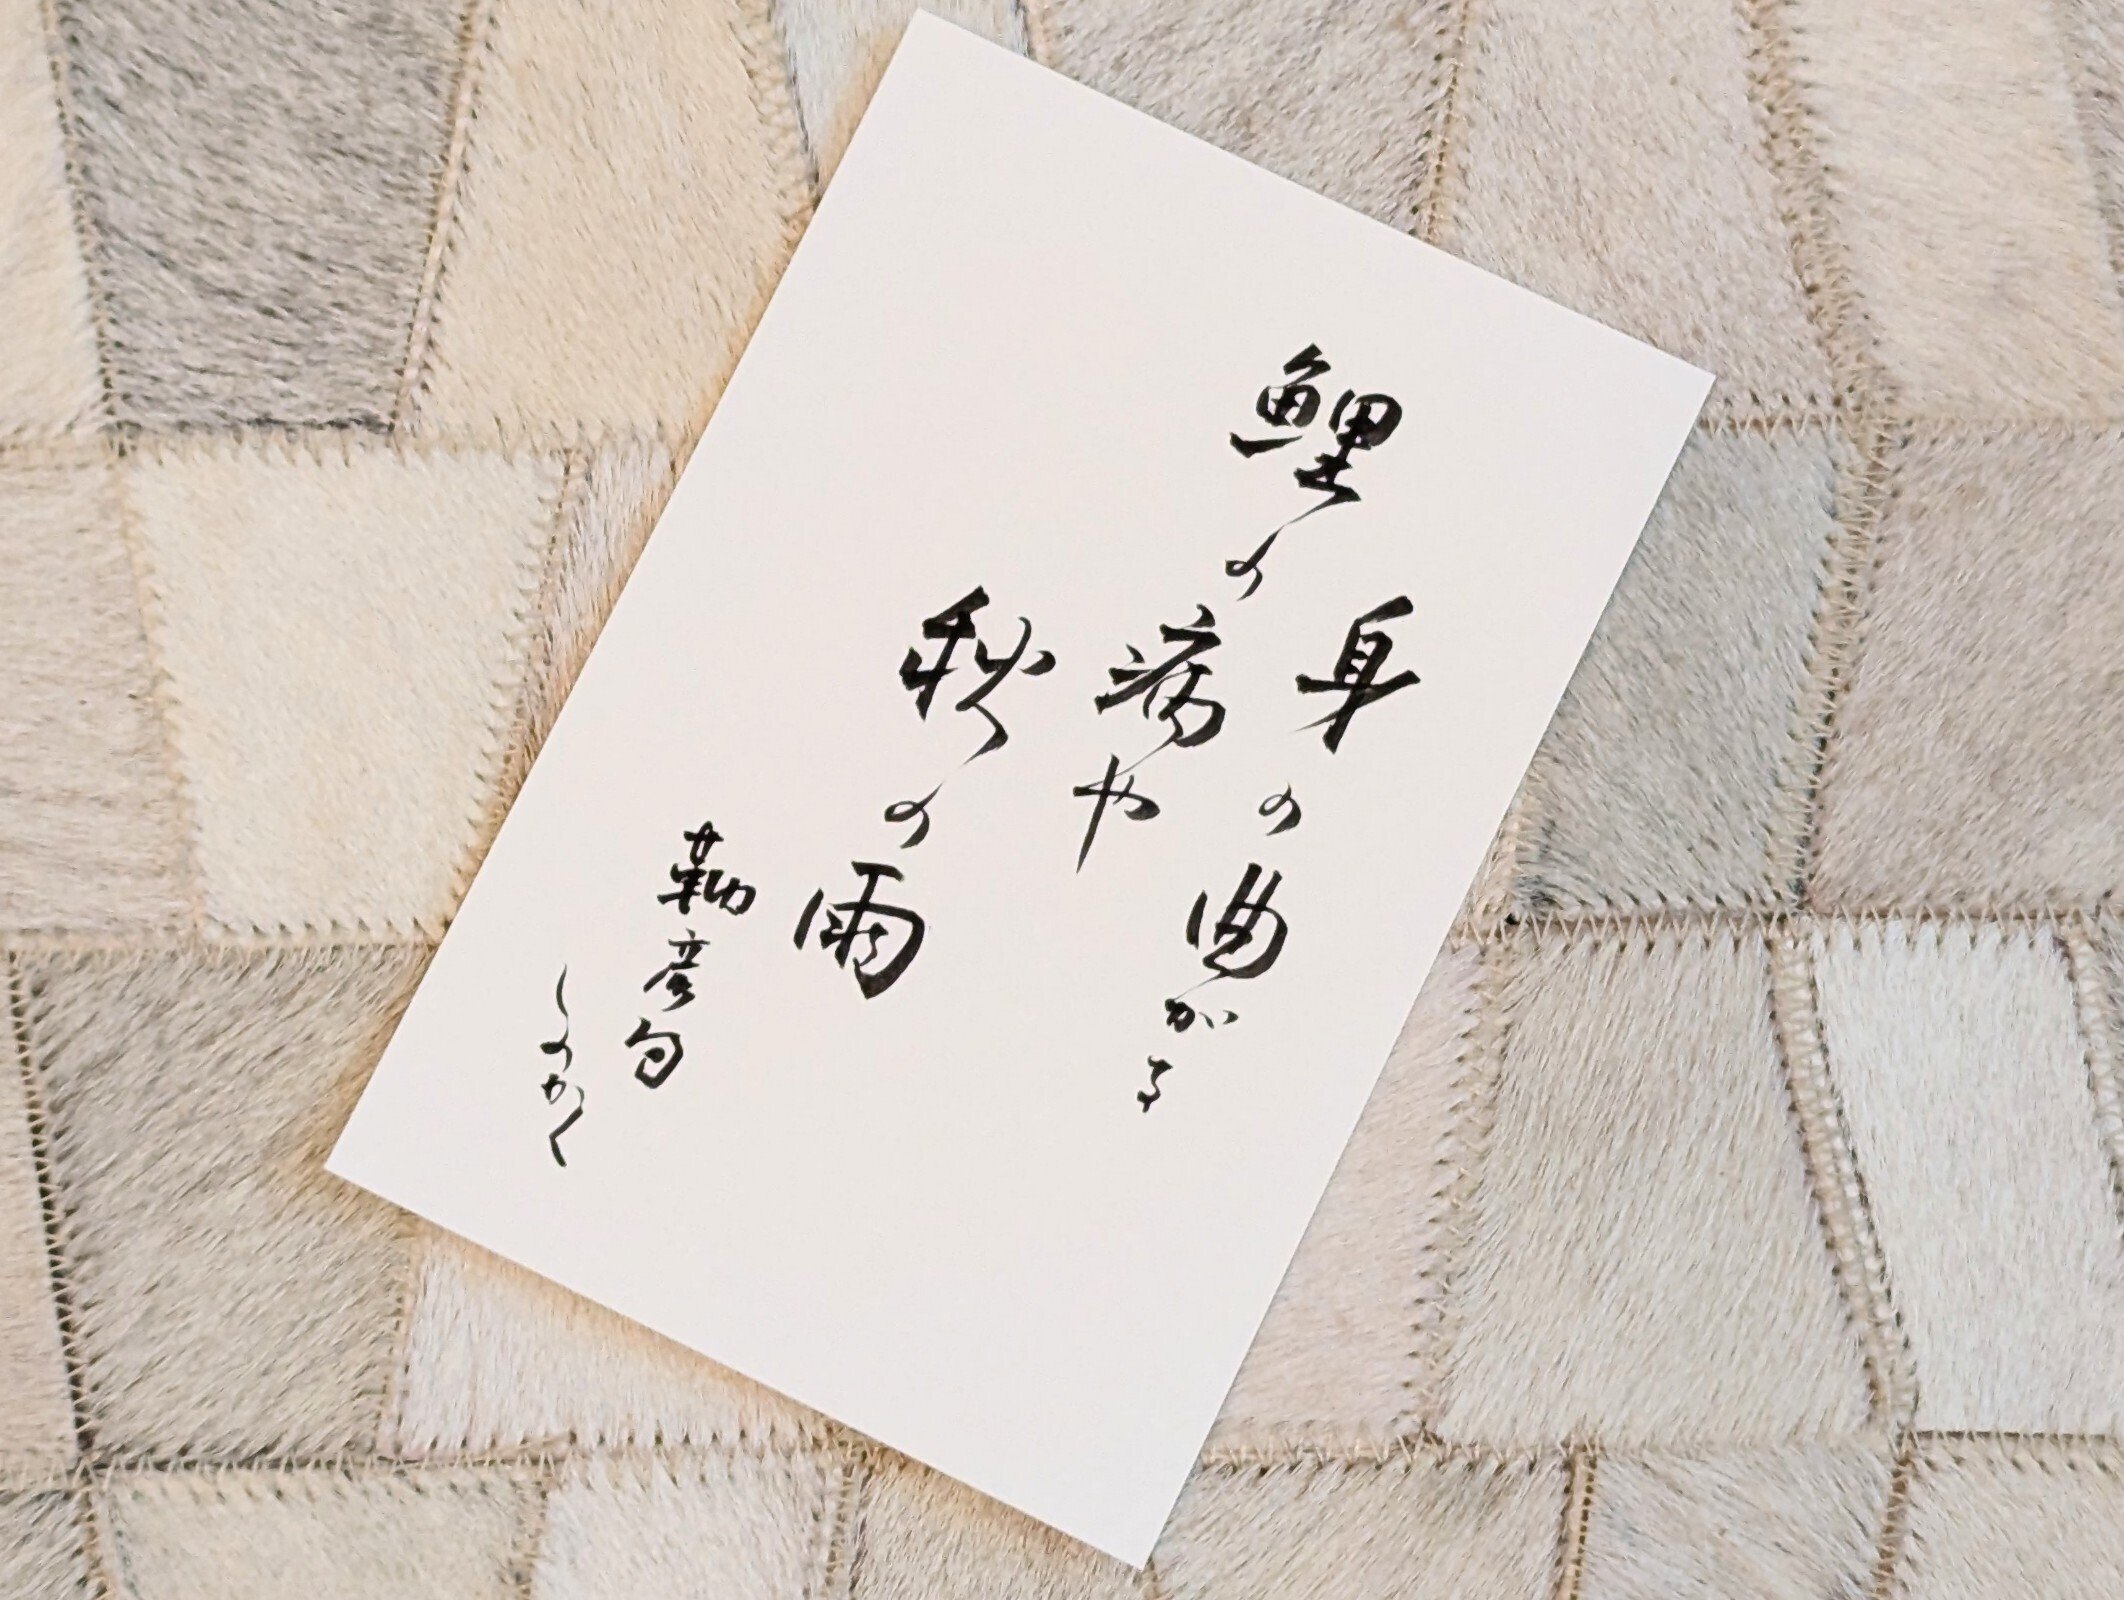 身の曲がる
鯉の病や
秋の雨
靭彦句
しのかく